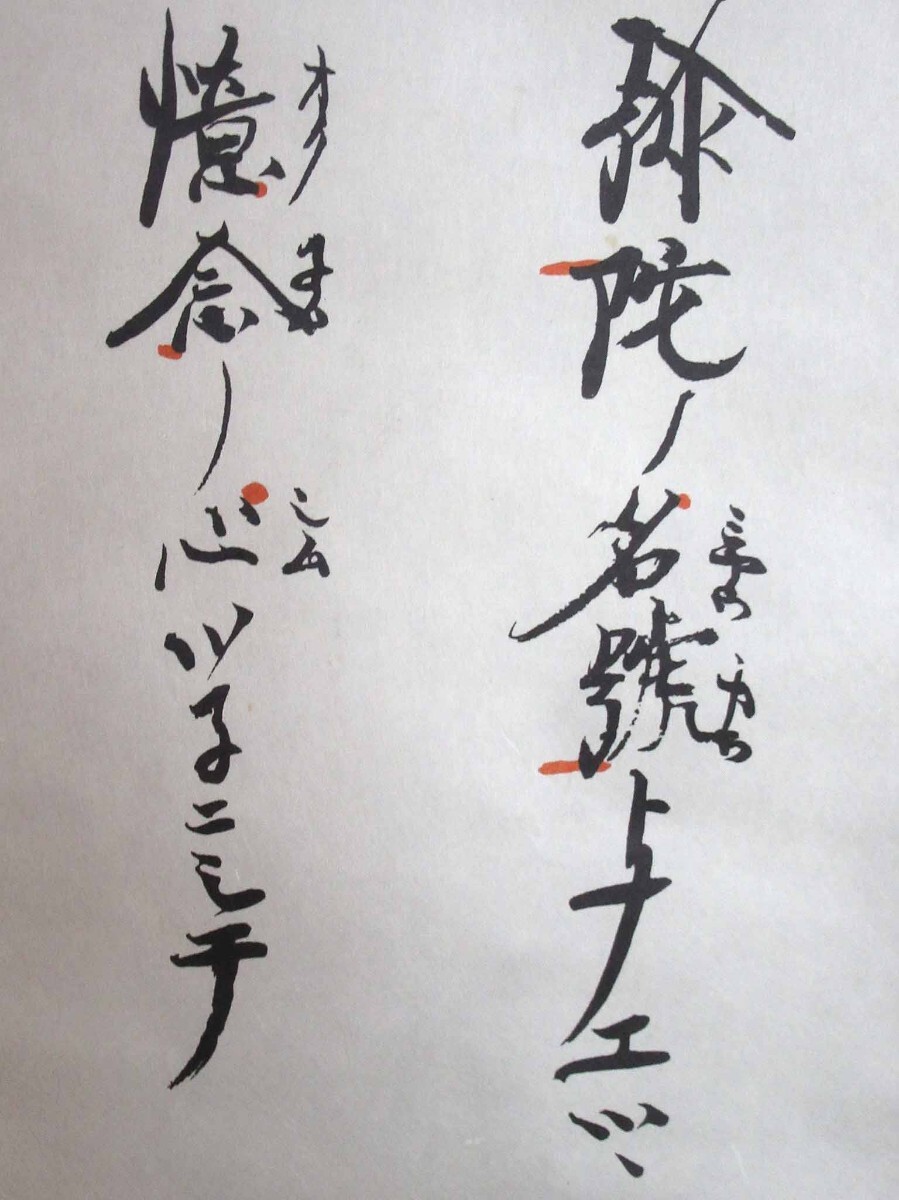 弥陀ノ名號トナエツヽ
ミヤウ カウ
憶念ノ心ツ子ニシテ
オク 子ム シム